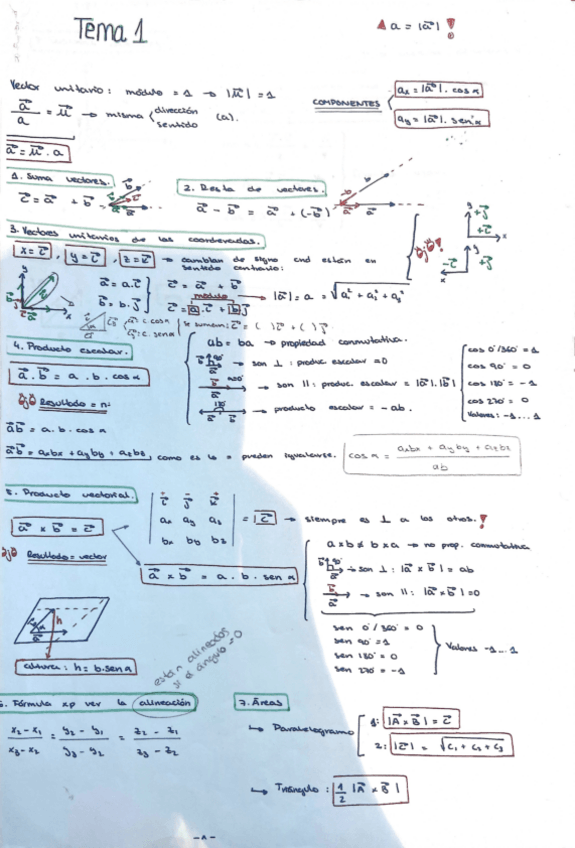 Tema 1
a = |a⃗| !
Vector unitario: módulo = 1 → |μ⃗| = 1
a⃗/a = μ⃗ → misma dirección sentido (a).
a⃗ = μ⃗ · a
COMPONENTES
ax = |a⃗| · cos α
ay = |a⃗| · sen α
1. Suma vectores.
c⃗ = a⃗ + b⃗
2. Resta de vectores.
a⃗ - b⃗ = a⃗ + (-b⃗)
3. Vectores unitarios de las coordenadas.
x = i⃗, y = j⃗, z = k⃗ → cambian de signo cnd están en
sentido contrario:
a⃗ = a · i⃗
b⃗ = b · j⃗
c⃗ = a⃗ + b⃗
c⃗ = a · i⃗ + b j⃗
módulo → |a⃗| = a =
se suman: c⃗ = ( ) i⃗ + ( ) j⃗
4. Producto escalar.
a⃗ · b⃗ = a · b · cos α
ojo Resultado = nº
a⃗b⃗ = a · b · cos α
a⃗b⃗ = axbx + ayby + azbz, como es lo = pueden igualarse.
cos α = axbx + ayby + azbz / ab
ab = ba → propiedad conmutativa.
→ son ⊥ : produc. escalar = 0
→ son || : produc. escalar = |a⃗| · |b⃗|
→ producto escalar = - ab.
cos 0°/360° = 1
cos 90° = 0
cos 180° = -1
cos 270° = 0
Valores: -1 ... 1
5. Producto vectorial.
a⃗ × b⃗ = c⃗
i⃗ j⃗ k⃗
ax ay az
bx by bz
= |c⃗| → siempre es ⊥ a los otros. !
ojo Resultado = vector
a⃗ × b⃗ = a · b · sen α
a × b ≠ b × a → no prop. conmutativa
→ son ⊥ : |a⃗ × b⃗| = ab
→ son || : |a⃗ × b⃗| = 0
sen 0°/360° = 0
sen 90° = 1
sen 180° = 0
sen 270° = -1
Valores -1 ... 1
h
altura: h = b · sen α
están alineados
si el ángulo = 0
6. Fórmula xp ver la alineación
x2 - x1 / x3 - x2 = y2 - y1 / y3 - y2 = z2 - z1 / z3 - z2
7. Áreas
→ Paralelogramo
1: |A⃗ × B⃗| = c⃗
2: |c⃗| = √c1 + c2 + c3
→ Triángulo: 1/2 |A⃗ × B⃗|
-1-